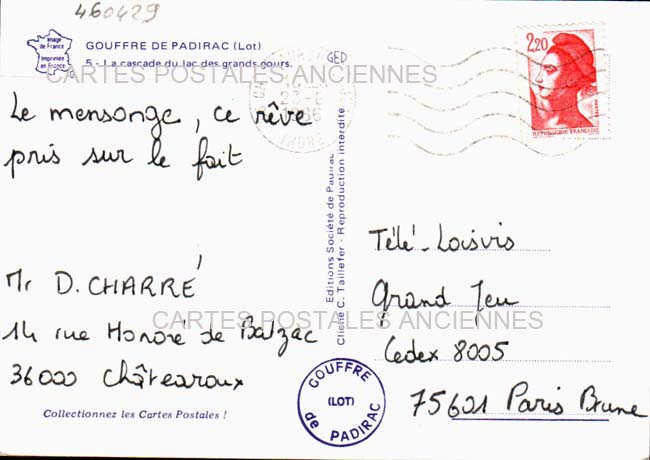 460429
Image
de France
Imprimée
en France
GOUFFRE DE PADIRAC (Lot)
5 - La cascade du lac des grands gours.
CARTES POSTALES ANCIENNES
1986
INDRE
2,20
REPUBLIQUE FRANÇAISE
Le mensonge, ce rêve
pris sur le fait
Editions Société de Padirac
Cliché C. Taillefer - Reproduction interdite
Mr D. CHARRÉ
14 rue Honoré de Balzac
36000 Châteauroux
Collectionnez les Cartes Postales !
CARTES POSTALES ANCIENNES
GOUFFRE
(LOT)
de PADIRAC
Télé-Loisirs
Grand Jeu
Cedex 8005
75621 Paris Brune